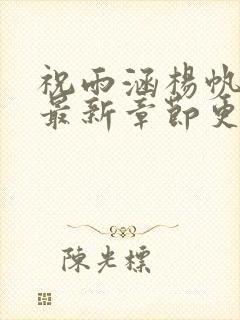 祝雨涵楊帆
最新章節更
陳光標